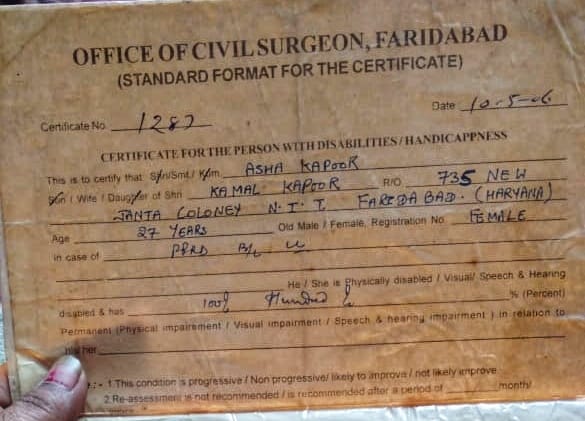 OFFICE OF CIVIL SURGEON, FARIDABAD
(STANDARD FORMAT FOR THE CERTIFICATE)
Date 10-5-06
Certificate No. 1282
CERTIFICATE FOR THE PERSON WITH DISABILITIES / HANDICAPPNESS
This is to certify that Shri/Smt./ Km. ASHA KAPOOR
Son / Wife / Daugther of Shri KAMAL KAPOOR R/O 735 NEW
JANTA COLONEY N.I.T. FARIDABAD. (HARYANA)
Age 27 YEARS Old Male / Female, Registration No. FEMALE
in case of PPRD B/L
He / She is Physically disabled / Visual/ Speech & Hearing
disabled & has 100% Hundred % % (Percent)
Permanent (Physical impairement / Visual impairment / Speech & hearing impairment ) in relation to
his her
1 This condition is progressive / Non progressive/ likely to improve / not likely improve
2 Re-assessment is not recommended / is recommended after a period of month/